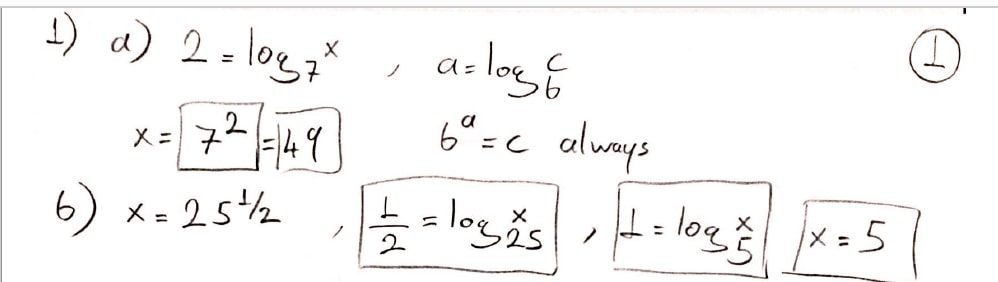 1) a) 2 = log₇ˣ , a = log_b^c ①
x = 7² = 49 b^a = c always
b) x = 25^1/2 , 1/2 = log₂₅ˣ , 1 = log₅ˣ x = 5